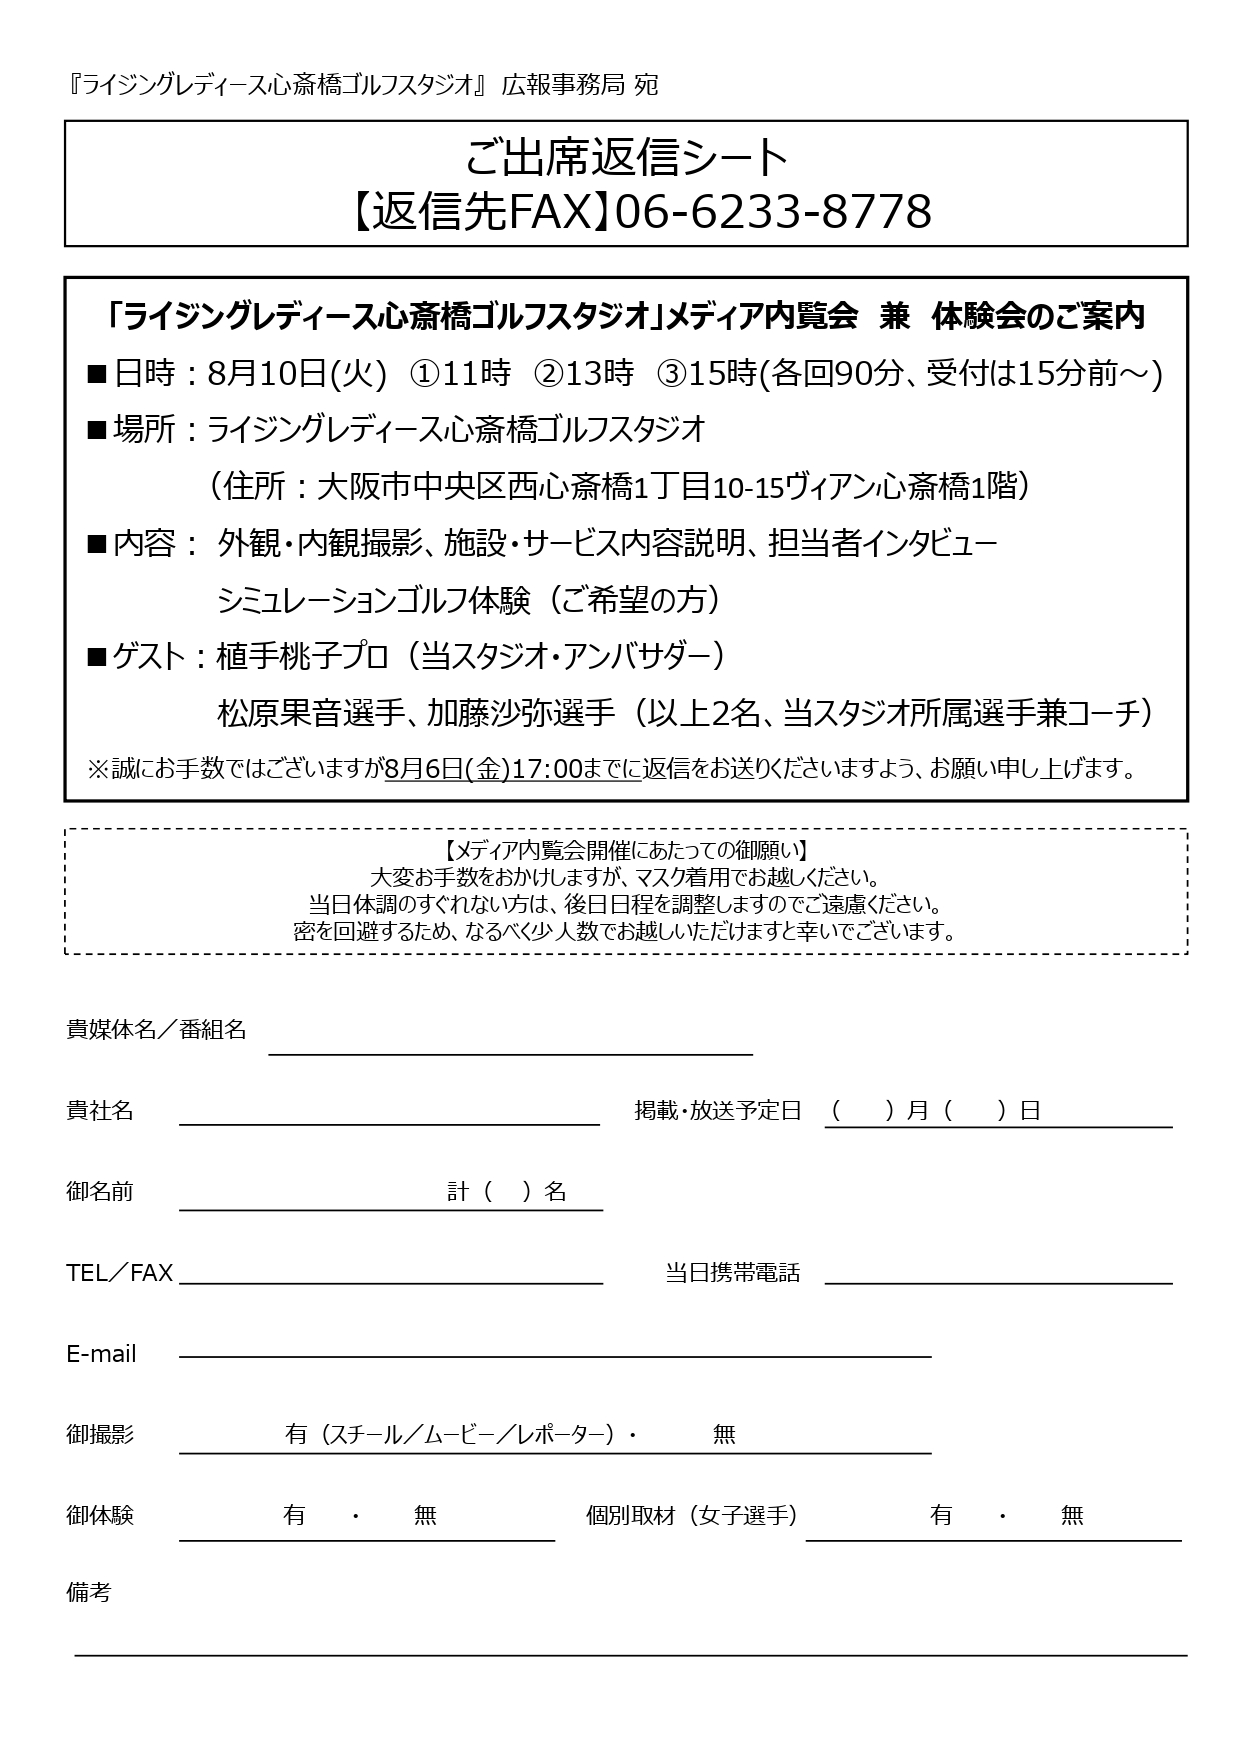 『ライジングレディース心斎橋ゴルフスタジオ』 広報事務局 宛
ご出席返信シート
【返信先FAX】06-6233-8778
「ライジングレディース心斎橋ゴルフスタジオ」メディア内覧会　兼　体験会のご案内
■日時：8月10日(火)　①11時　②13時　③15時(各回90分、受付は15分前～)
■場所：ライジングレディース心斎橋ゴルフスタジオ
（住所：大阪市中央区西心斎橋1丁目10-15ヴィアン心斎橋1階）
■内容： 外観・内観撮影、施設・サービス内容説明、担当者インタビュー
シミュレーションゴルフ体験（ご希望の方）
■ゲスト：植手桃子プロ（当スタジオ・アンバサダー）
松原果音選手、加藤沙弥選手（以上2名、当スタジオ所属選手兼コーチ）
※誠にお手数ではございますが8月6日(金)17:00までに返信をお送りくださいますよう、お願い申し上げます。
【メディア内覧会開催にあたっての御願い】
大変お手数をおかけしますが、マスク着用でお越しください。
当日体調のすぐれない方は、後日日程を調整しますのでご遠慮ください。
密を回避するため、なるべく少人数でお越しいただけますと幸いでございます。
貴媒体名／番組名
貴社名　掲載・放送予定日　（　　）月（　　）日
御名前　計（　）名
TEL／FAX　当日携帯電話
E-mail
御撮影　有（スチール／ムービー／レポーター）・　無
御体験　有　・　無　個別取材（女子選手）　有　・　無
備考